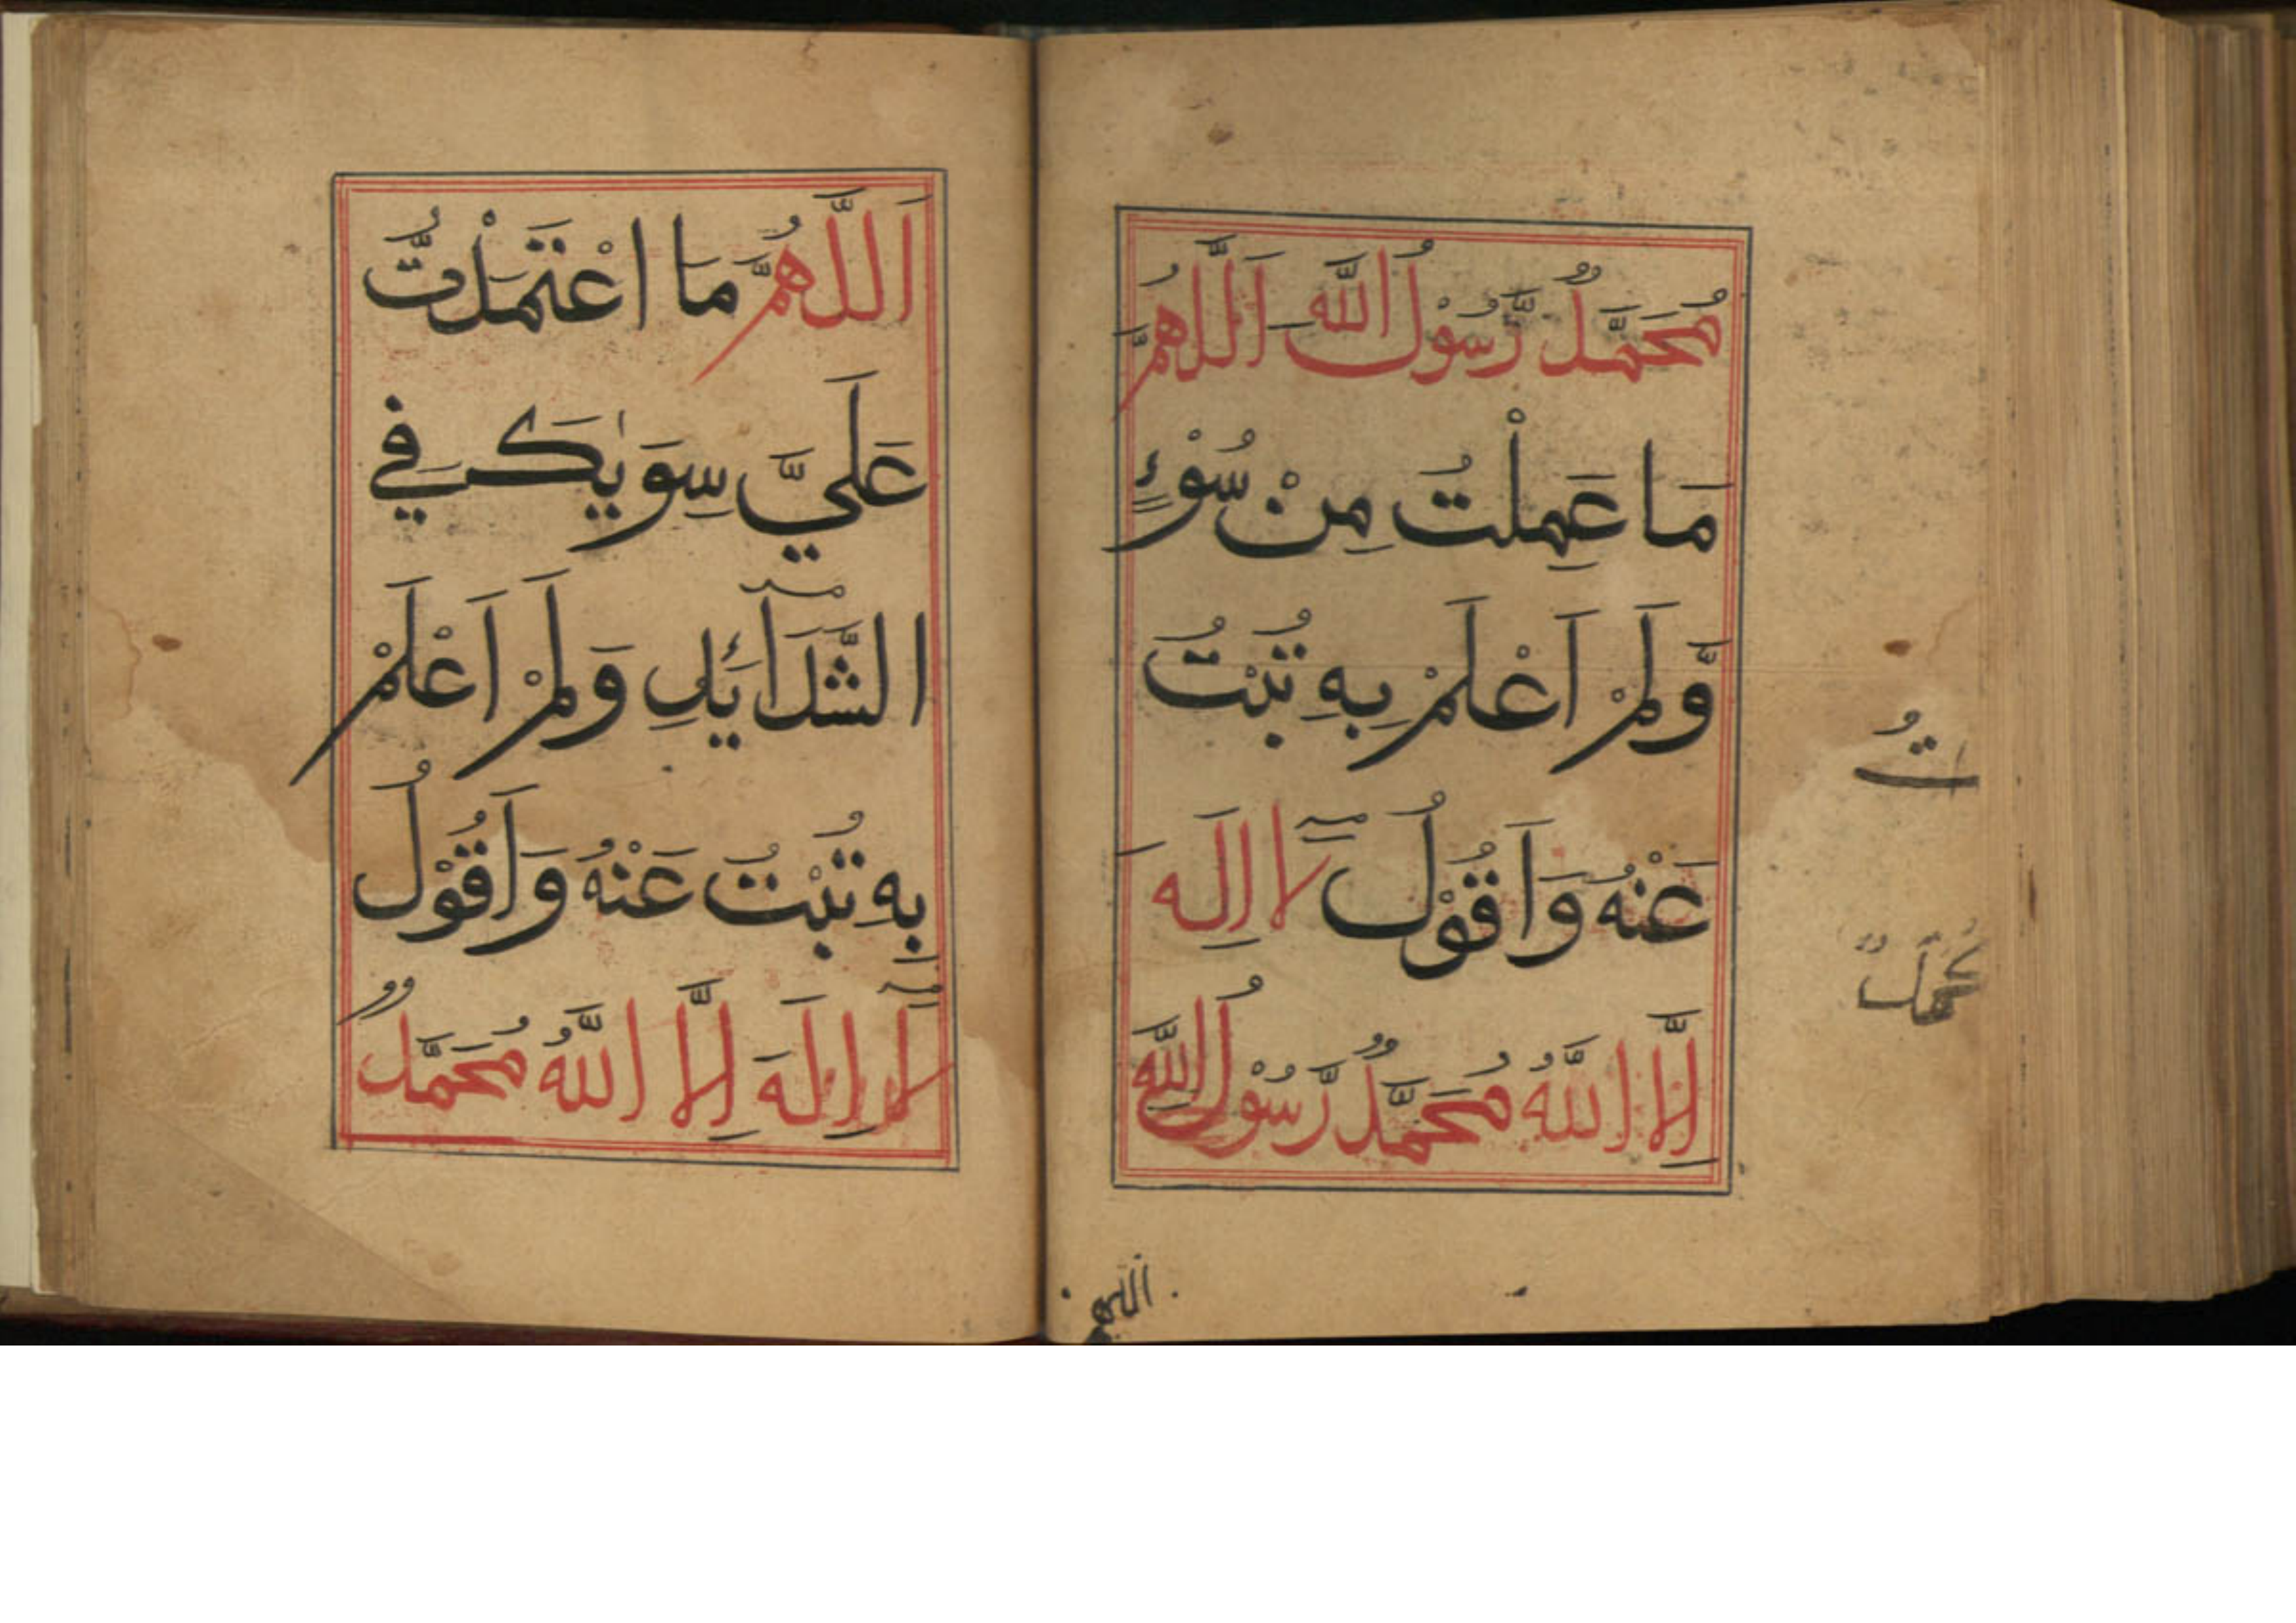 مُحَمَّدٌ رَّسُوْلُ اللّٰهِ اَللّٰهُمَّ
مَا عَمِلْتُ مِنْ سُوْءٍ
وَّلَمْ اَعْلَمْ بِهِ تُبْتُ
عَنْهُ وَاَقُوْلُ لَآ اِلَهَ
اِلَّا اللَّهُ مُحَمَّدٌ رَّسُوْلُ اللَّهِ
اللهم
اَللَّهُمَّ مَا اعْتَمَلْتُّ
عَلَيَّ سِوَيٰكَ فِي
الشَّدَآئِدِ وَلَمْ اَعْلَمْ
بِهِ تُبْتُ عَنْهُ وَاَقُوْلُ
لَآ اِلَهَ اِلَّا اللَّهُ مُحَمَّدٌ